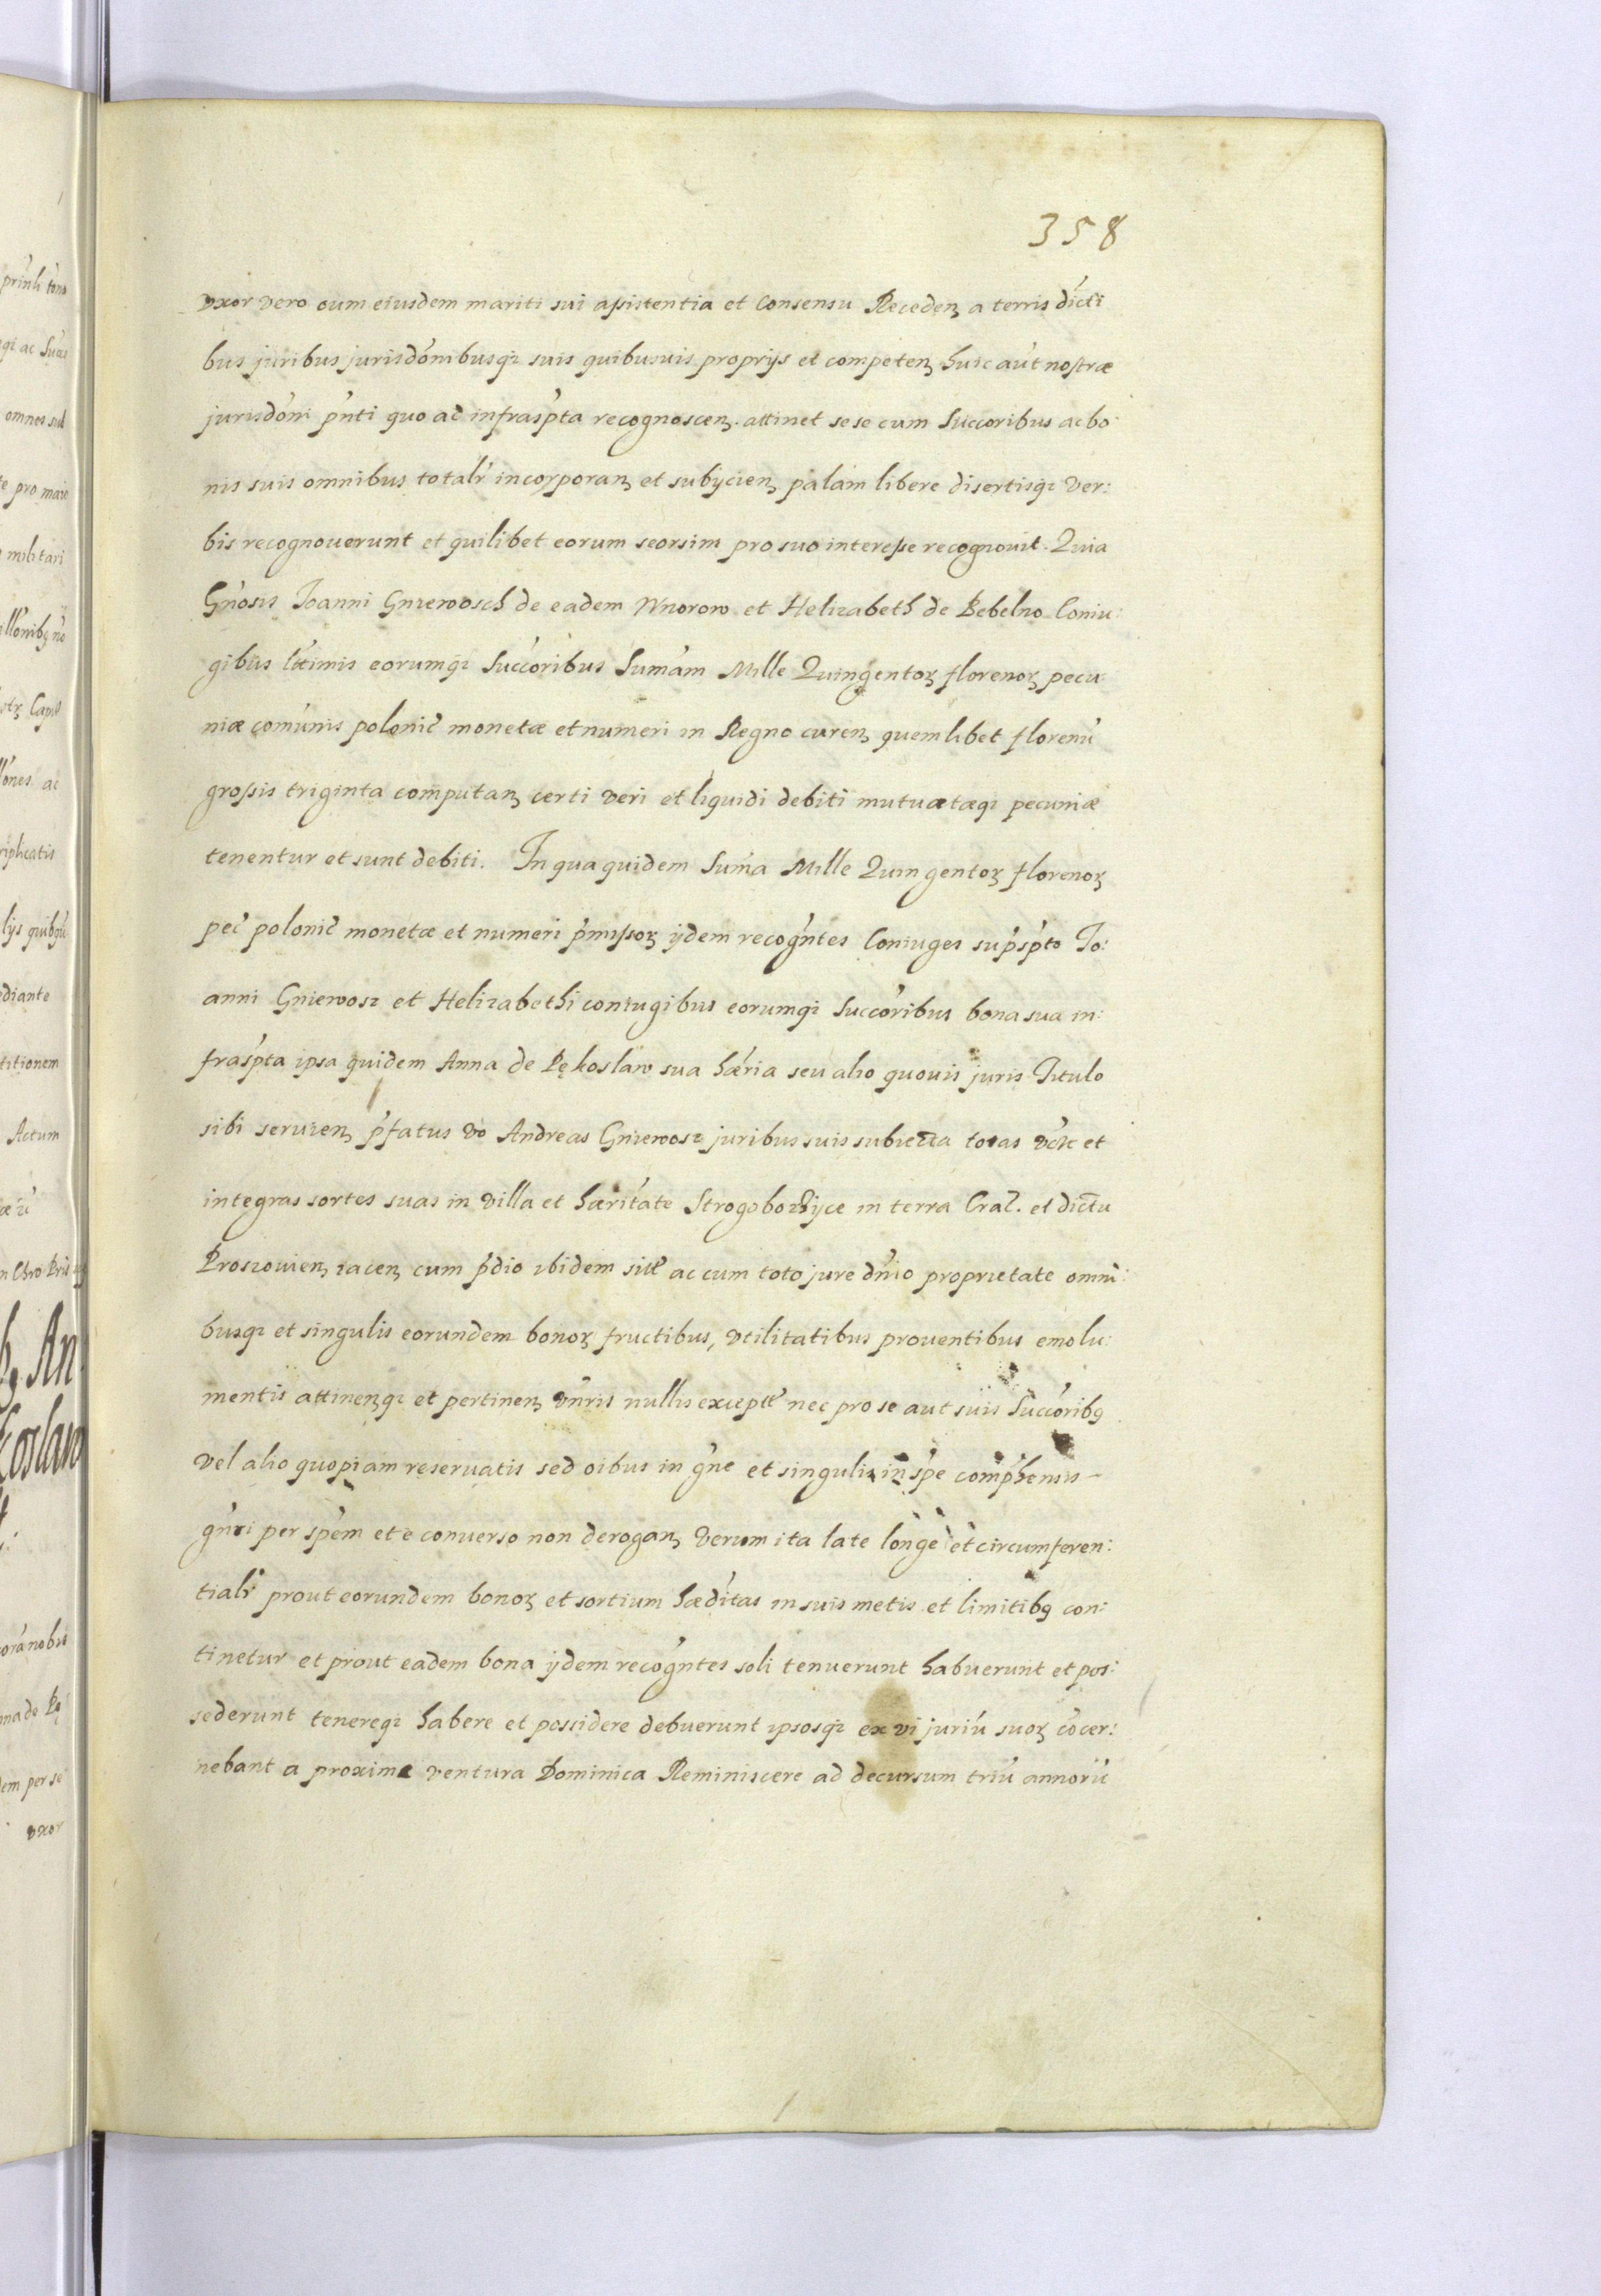 358
vxor vero cum eiusdem mariti sui assistentia et Consensu Recedenʒ a terris dicti
bus juribus jurisdónibusqʒ suis quibusuis proprijs et competenʒ huic aút nostræ
jurisdóni pńti quo ad infraspta recognoscenʒ. attinet sese cum Succoribus ac bo:
nis suis omnibus totalr incorporanʒ et subijcienʒ palam libere disertisqʒ ver:
bis recognouerunt et quilibet eorum seorsim pro suo interesse recognouit. Quia
Gnosis Joanni Gniewosch de eadem Wnorow et Helizabeth de Bebelno Coniu:
gibus lttimis eorumqʒ Succoribus Sumam Mille Quingentoʒ florenoʒ pecu:
niæ comunis polonic monetæ et numeri in Regno curenʒ quemlibet florenu
grossis triginta computanʒ certi veri et liquidi debiti mutuatæqʒ pecuniæ
tenentur et sunt debiti. In qua quidem Suma Mille Quingentoʒ florenoʒ
pec polonic monetæ et numeri pmissoʒ ijdem recogntes Coniuges supspto Jo:
anni Gniewosz et Helizabethi coniugibus eorumqʒ Succoribus bona sua in:
fraspta ipsa quidem Anna de Pękoslaw sua hæria seu alio quouis juris Titulo
sibi seruienʒ pfatus vo Andreas Gniewosz juribus suis subiecta totas et
integras sortes suas in villa et hæritate Strogoborzyce in terra Crac. et dictu
Proszouienʒ iacenʒ cum pdio ibidem sitt ac cum toto jure dnio proprietate omni:
busqʒ et singulis eorundem bonoʒ fructibus, vtilitatibus prouentibus emolu:
mentis attinenʒqʒ et pertinenʒ vnris nullis exceptt nec pro se aut suis Succoribꝯ
vel alio quopiam reseruatis sed oibus in gne et singulis in spe comphensis –
gnri per spem et e conuerso non deroganʒ verum ita late longe et circumferen:
tialr prout eorundem bonoʒ et sortium hæditas in suis metis et limitibꝯ con:
tinetur et prout eadem bona ijdem recogntes soli tenuerunt habuerunt et pos:
sederunt tenereqʒ habere et possidere debuerunt ipsosqʒ ex vi juriu suoʒ cocer:
nebant a proxime ventura Dominica Reminiscere ad decursum triu annoru